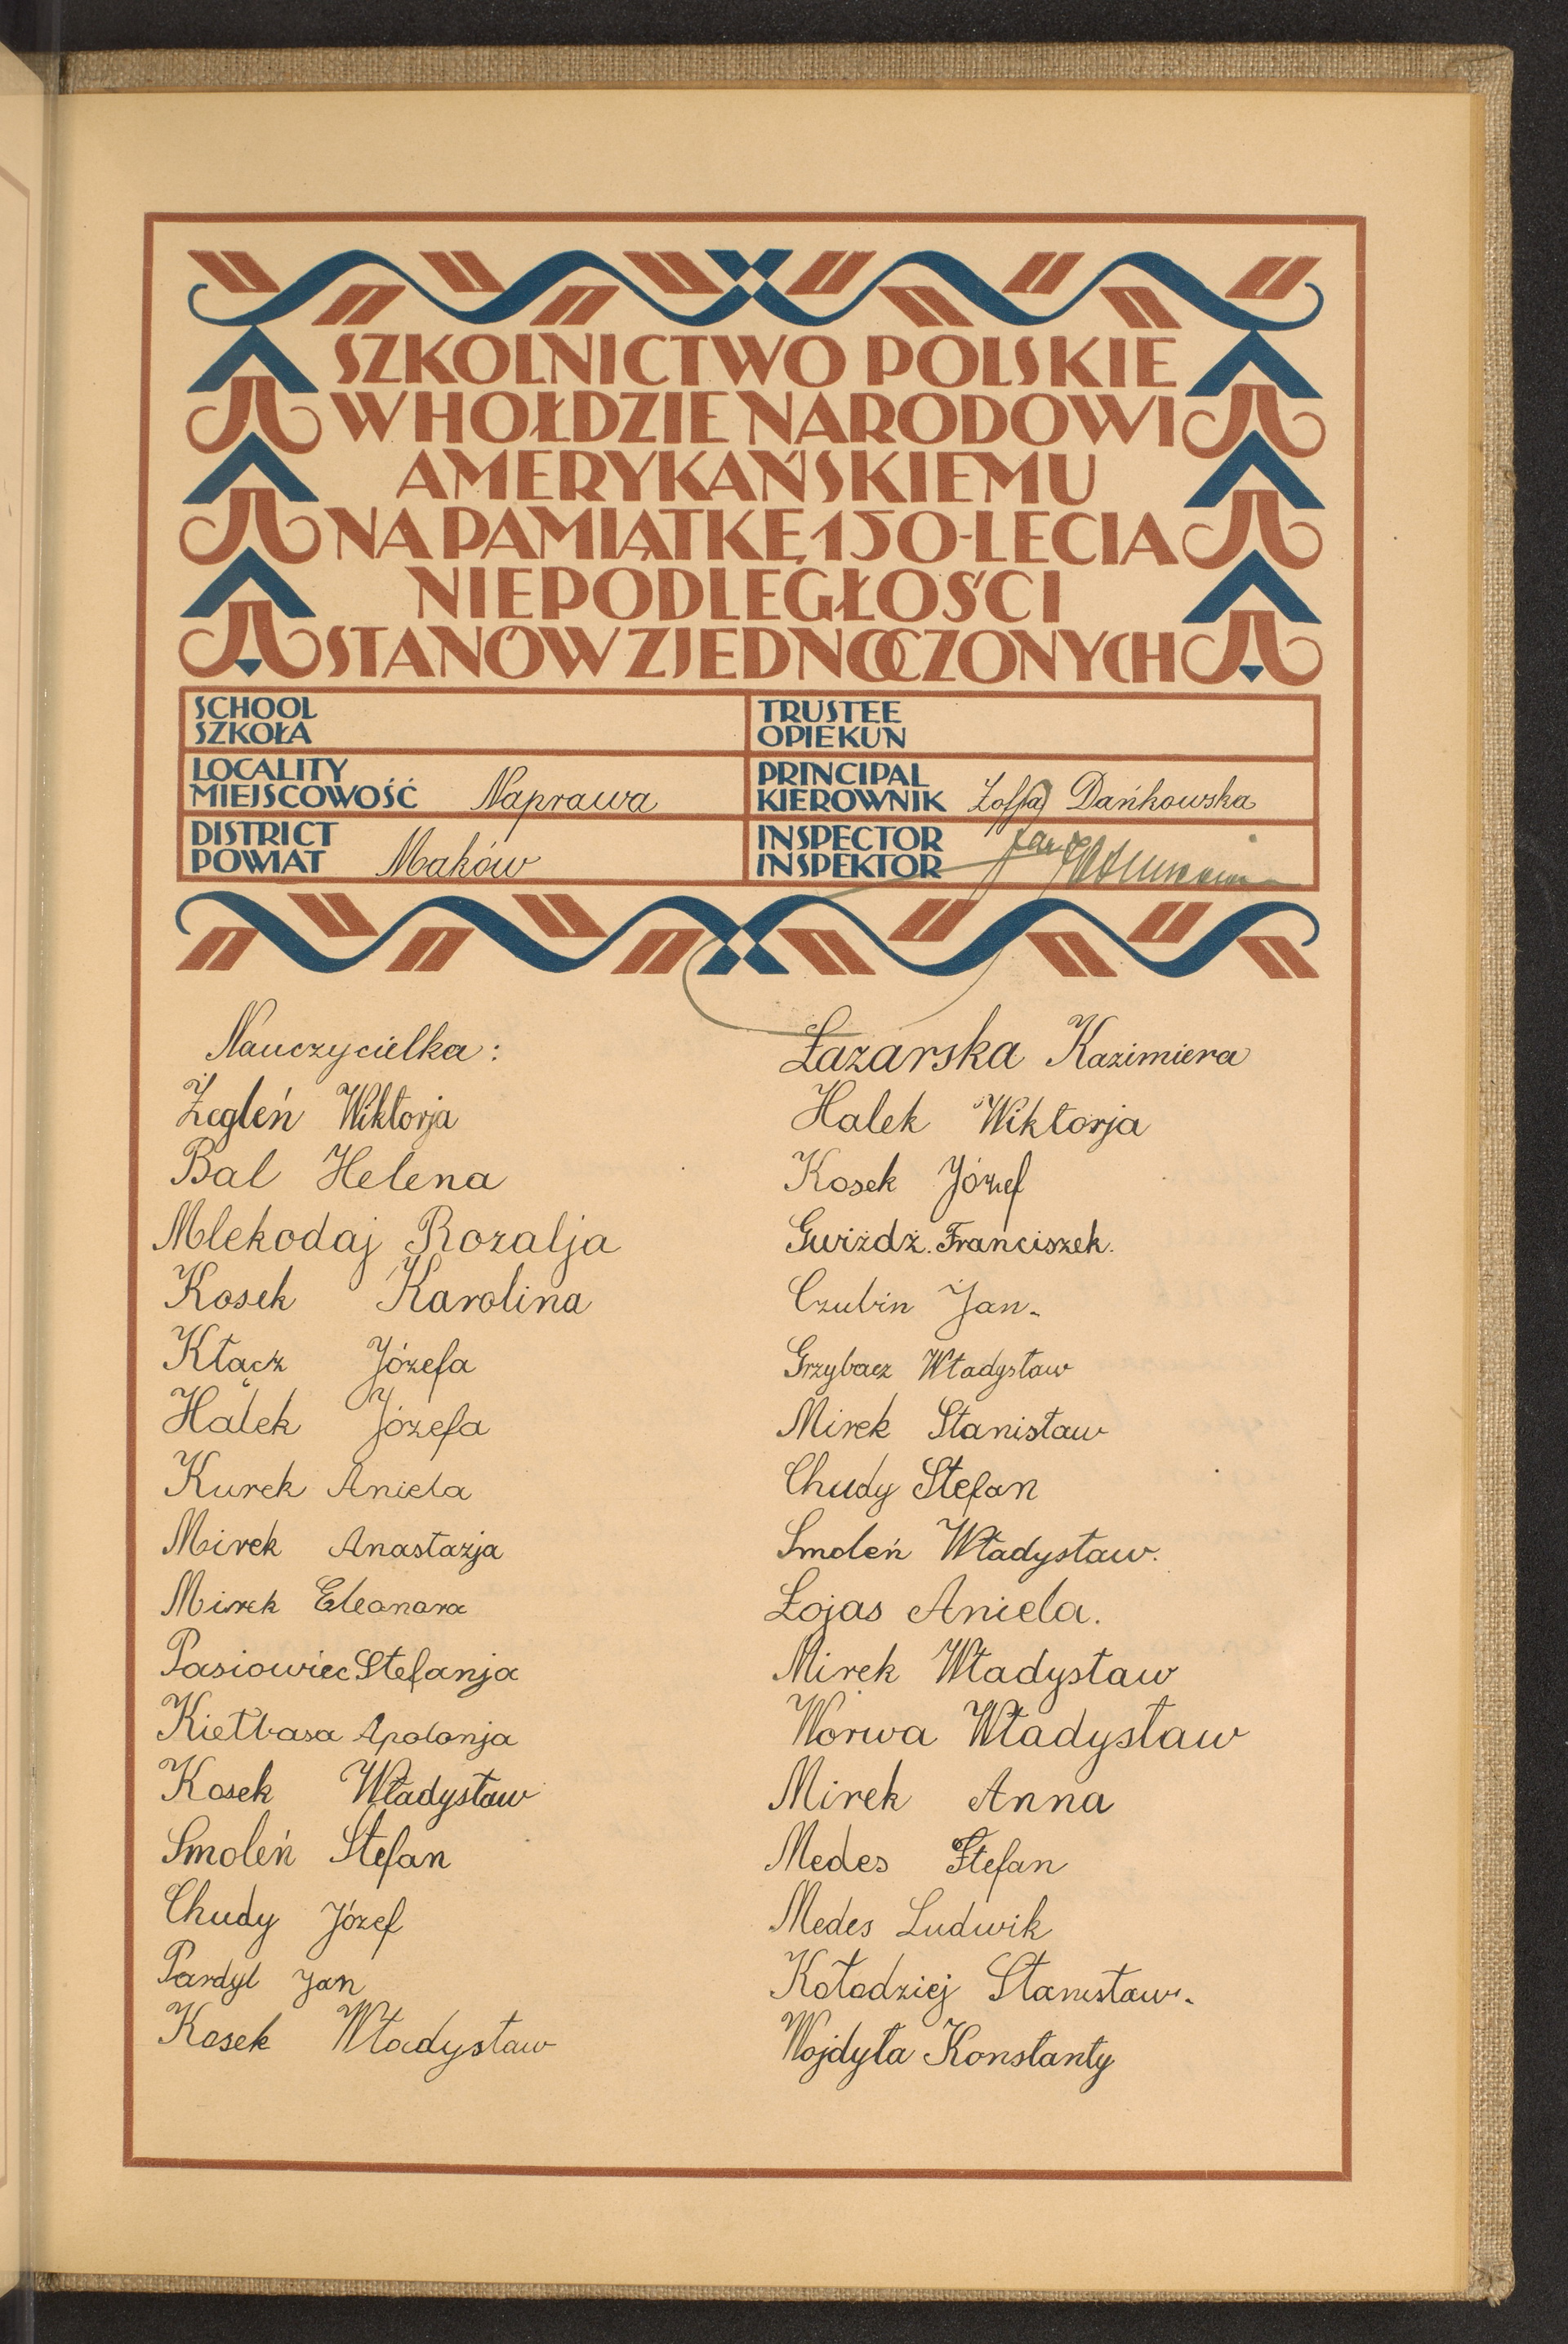 SZKOLNICTWO POLSKIE
W HOŁDZIE NARODOWI
AMERYKAŃSKIEMU
NA PAMIĄTKĘ 150-LECIA
NIEPODLEGŁOŚCI
STANÓW ZJEDNOCZONYCH
SCHOOL
SZKOŁA
TRUSTEE
OPIEKUN
LOCALITY
MIEJSCOWOŚĆ Naprawa
PRINCIPAL
KIEROWNIK Zofja Dańkowska
DISTRICT
POWIAT Maków
INSPECTOR
INSPEKTOR Jan
Nauczycielka:
Żegleń Wiktorja
Bal Helena
Mlekodaj Rozalja
Kosek Karolina
Kłącz Józefa
Halek Józefa
Kurek Aniela
Mirek Anastazja
Mirek Eleonora
Pasiowiec Stefanja
Kiełbasa Apolonja
Kosek Władysław
Smoleń Stefan
Chudy Józef
Pardyl Jan
Kosek Władysław
Łazarska Kazimiera
Halek Wiktorja
Kosek Józef
Gwiżdż. Franciszek.
Czubin Jan.
Grzybacz Władysław
Mirek Stanisław
Chudy Stefan
Smoleń Władysław.
Łojas Aniela.
Mirek Władysław
Worwa Władysław
Mirek Anna
Medes Stefan
Medes Ludwik
Kołodziej Stanisław.
Wojdyła Konstanty